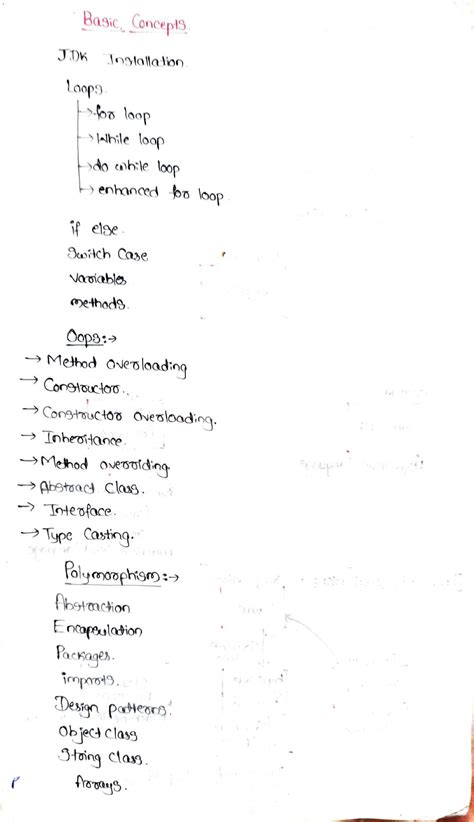 Basic Concepts
JDK Installation.
Loops.
→ for loop
→ While loop
→ do while loop
→ enhanced for loop.
if else.
Switch Case
variables
methods.
Oops:→
→ Method overloading
→ Constructor..
→ Constructor overloading.
→ Inheritance.
→ Method overriding
→ Abstract Class.
→ Interface.
→ Type Casting.
Polymorphism:→
Abstraction
Encapsulation
Packages.
imports.
Design patterns.
Object class
String class.
Arrays.